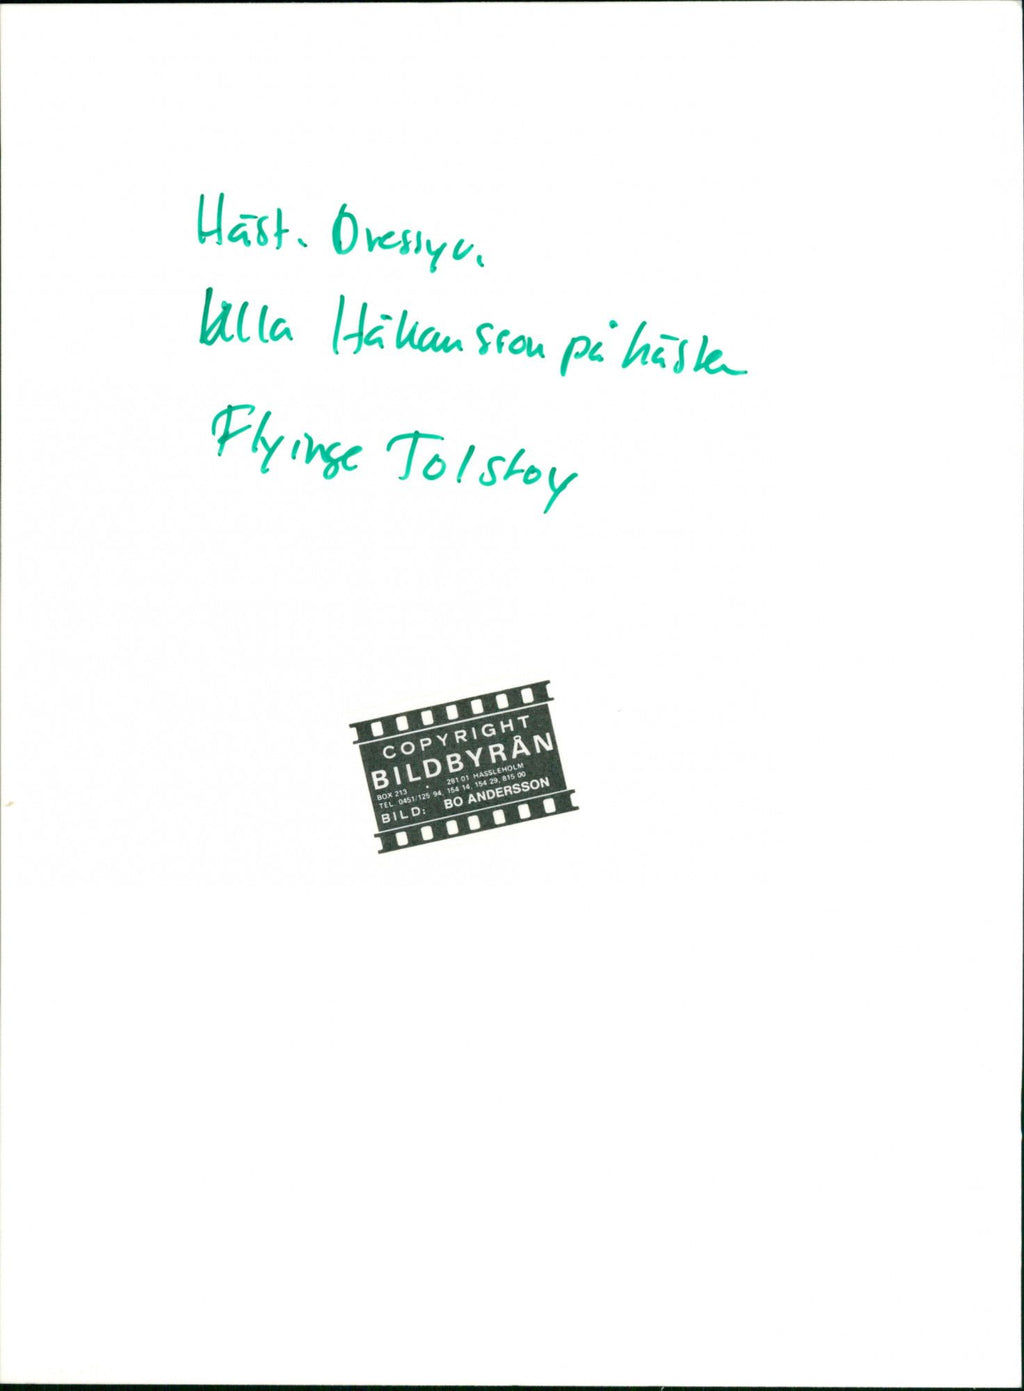 Häst. Dressyr.
Ulla Håkansson på hästen
Flyinge Tolstoy
COPYRIGHT
BILDBYRÅN
BOX 213 • 281 01 HÄSSLEHOLM
TEL. 0451/125 94, 154 14, 154 29, 815 00
BILD: BO ANDERSSON